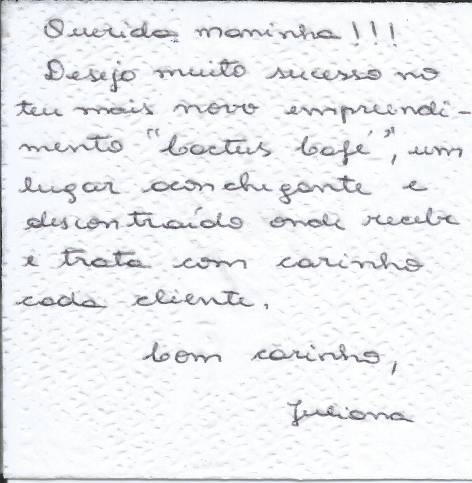 Querida maninha!!!
Desejo muito sucesso no
teu mais novo empreendi-
mento "Cactus Café", um
lugar aconchegante e
descontraído onde recebe
e trata com carinho
cada cliente.
Com carinho,
Juliana